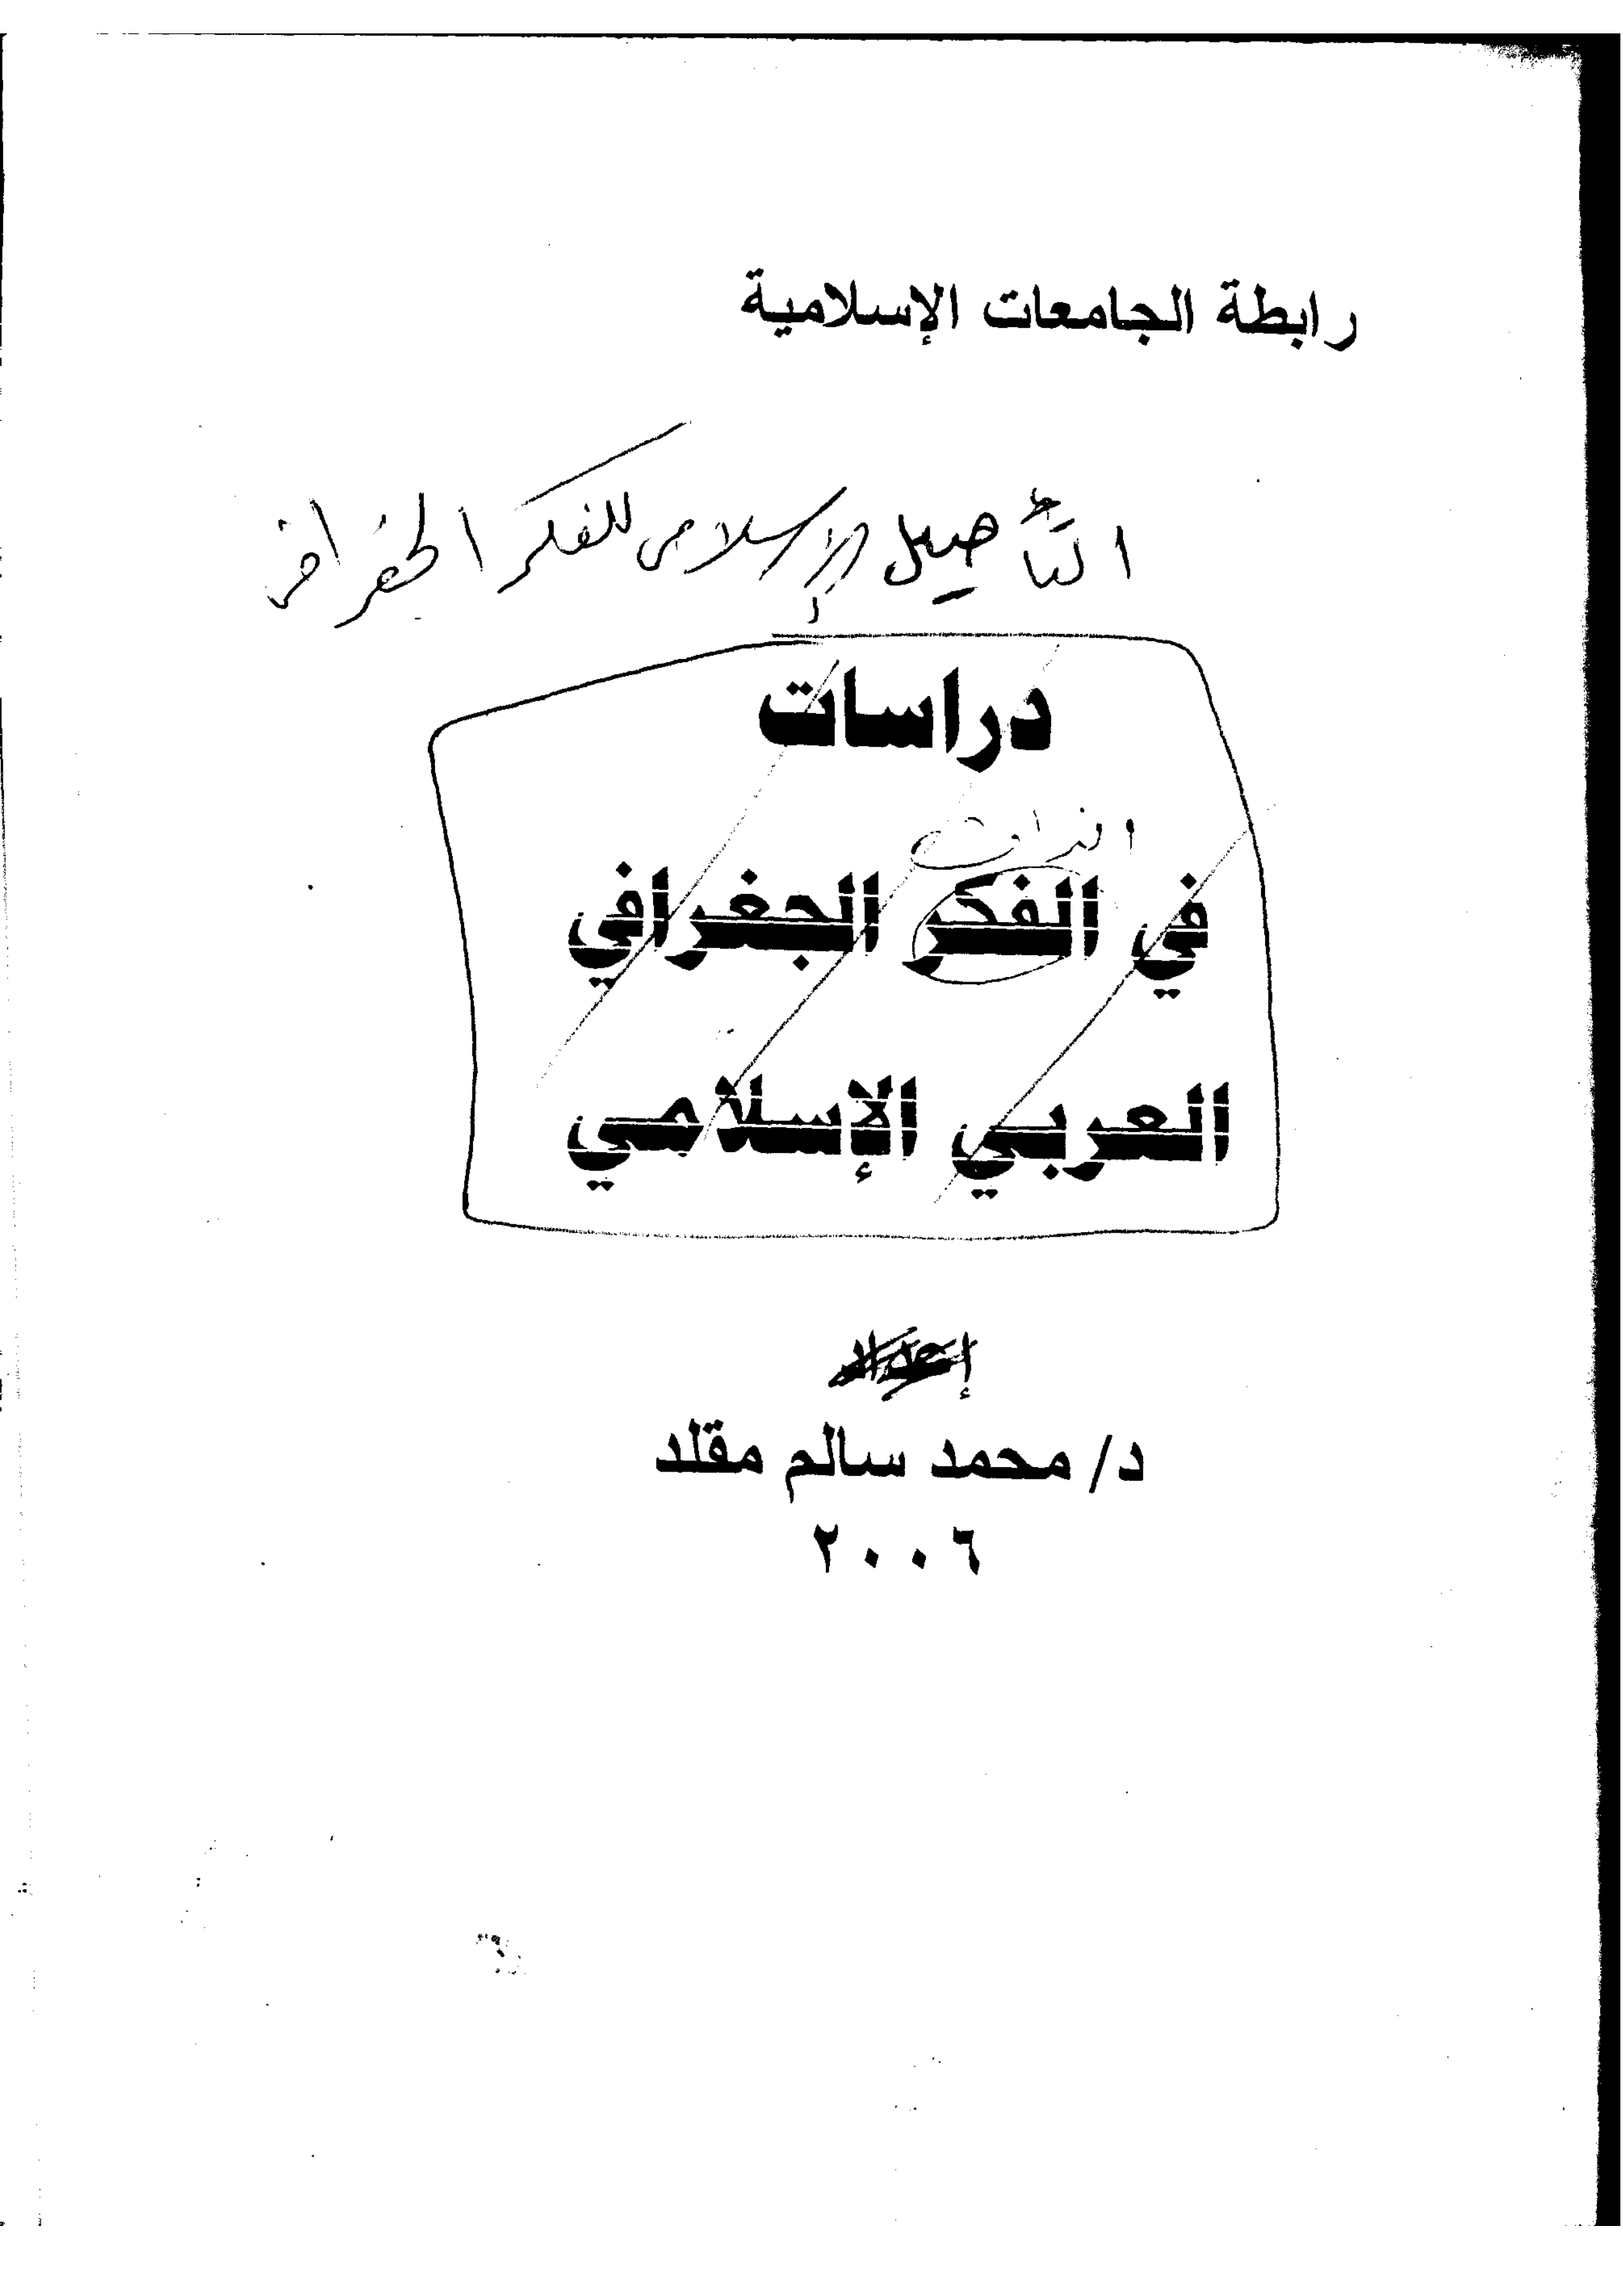 رابطة الجامعات الإسلامية
التأصيل الإسلامى للفكر الجغرافى
دراسات
التراث
في الفكر الجغرافي
العربي الإسلامي
إعداد
د/ محمد سالم مقلد
٢٠٠٦